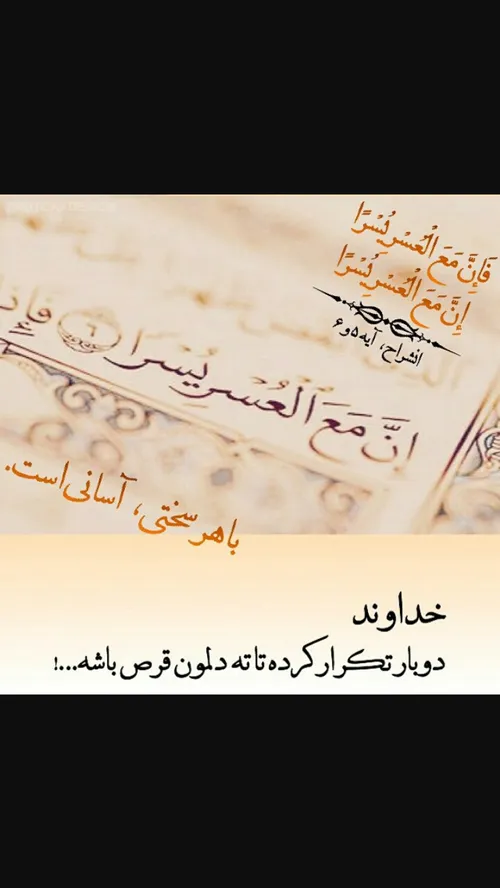 فَإِنَّ مَعَ الْعُسْرِ يُسْرًا
إِنَّ مَعَ الْعُسْرِ يُسْرًا
انشراح، آیه ۵ و ۶
اِنَّ مَعَ الْعُسْرِ يُسْرًا ٦ فَإِذَا
با هر سختی، آسانی است.
خداوند
دوبار تکرار کرده تا ته دلمون قرص باشه...!